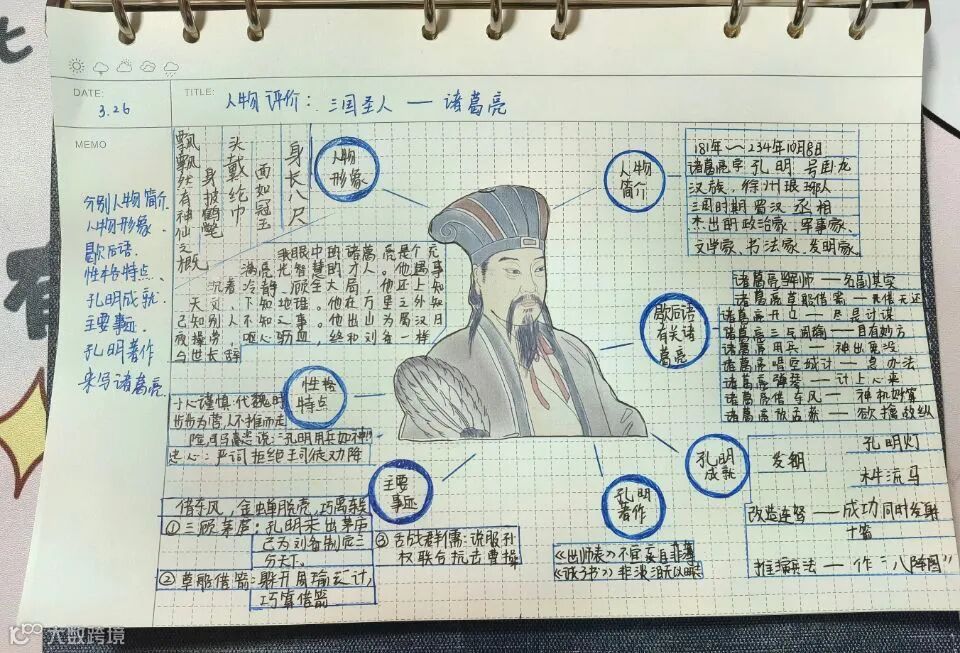 DATE:
3.26
TITLE:
人物评价：三国圣人——诸葛亮
MEMO
分别人物简介.
人物形象.
歇后语.
性格特点、
孔明成就.
主要事迹.
孔明著作
来写诸葛亮.
身长八尺
面如冠玉
头戴纶巾
身披鹤氅
飘飘然有神仙之概
人物
形象
我眼中的诸葛亮是个充
满
智慧的才人。他遇事
沉着冷静，顾全大局，他还上知
天文、下知地理。他在万里之外知
己知别人不知之事。他出山为蜀汉日
夜操劳，呕心沥血，终和刘备一样
与世长辞
人物
简介
181年——234年10月8日
诸葛亮字孔明 号卧龙
汉族，徐州琅琊人
三国时期蜀汉丞相
杰出的政治家、军事家、
文学家、书法家、发明家.
歇后语
有关诸
葛亮
诸葛亮 ——名副其实
诸葛亮草船借箭——有借无还
诸葛亮 ——尽是计谋
诸葛亮三气周瑜——自有妙方
诸葛亮用兵——神出鬼没
诸葛亮唱空城计——急办法
诸葛亮弹琴——计上心来
诸葛亮借东风——神机妙算
诸葛亮放孟获——欲擒故纵
性格
特点
小心谨慎 代魏时
步步为营，人不推而走
司马懿 说：“孔明用兵如神”
忠心：严词拒绝王司徒劝降
主要
事迹
借东风，金蝉脱壳，巧离东吴
①三顾茅庐：孔明未出茅庐
已为刘备制定三
分天下.
②草船借箭：躲开周瑜 计，
巧算借箭
③舌战群儒：说服孙
权联合抗击曹操
孔明
著作
《出师表》不宜妄自菲薄
《诫子书》非淡泊无以明志
孔明
成就
发明
孔明灯
木牛流马
改造连弩——成功同时发射
十箭
推演兵法——作“八阵图”
大数跨境